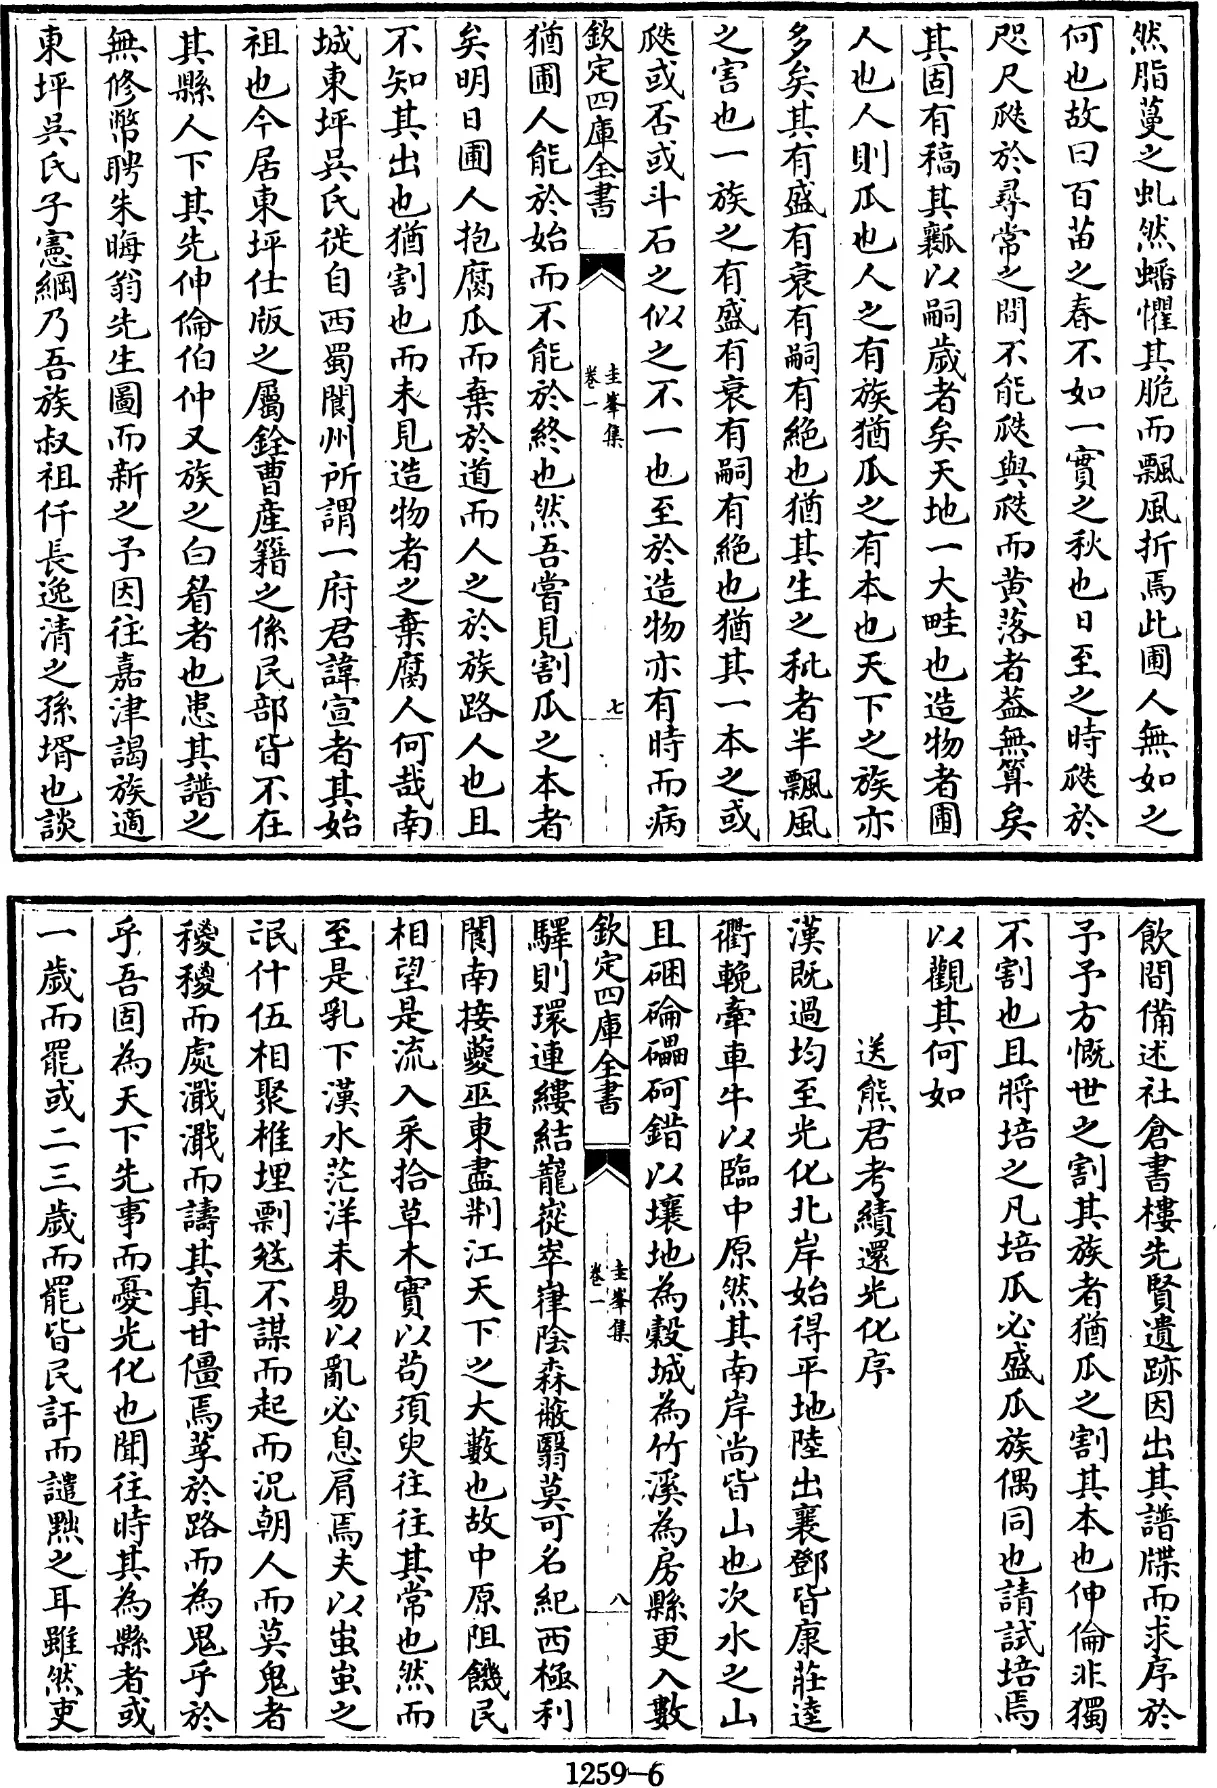 然脂蔓之虬然蟠懼其脆而飄風折焉此圃人無如之
何也故曰百苗之春不如一實之秋也日至之時瓞於
咫尺瓞於尋常之間不能瓞與瓞而黄落者葢無算矣
其固有稿其瓤以嗣歲者矣天地一大畦也造物者圃
人也人則瓜也人之有族猶瓜之有本也天下之族亦
多矣其有盛有衰有嗣有絶也猶其生之秕者半飄風
之害也一族之有盛有衰有嗣有絶也猶其一本之或
瓞或否或斗石之似之不一也至於造物亦有時而病
欽定四庫全書
圭峯集
卷一
七
猶圃人能於始而不能於終也然吾嘗見割瓜之本者
矣明日圃人抱腐瓜而棄於道而人之於族路人也且
不知其出也猶割也而未見造物者之棄腐人何哉南
城東坪吳氏徙自西蜀閬州所謂一府君諱宣者其始
祖也今居東坪仕版之屬銓曹産籍之係民部皆不在
其縣人下其先伸倫伯仲又族之白眉者也患其譜之
無修幣聘朱晦翁先生圖而新之予因往嘉津謁族適
東坪吳氏子憲綱乃吾族叔祖仟長逸清之孫壻也談
飲間備述社倉書樓先賢遺跡因出其譜牒而求序於
予予方慨世之割其族者猶瓜之割其本也伸倫非獨
不割也且將培之凡培瓜必盛瓜族偶同也請試培焉
以觀其何如
送熊君考績還光化序
漢既過均至光化北岸始得平地陸出襄鄧皆康莊逵
衢輓牽車牛以臨中原然其南岸尚皆山也次水之山
且硱碖礧砢錯以壤地為穀城為竹溪為房縣更入數
欽定四庫全書
圭峯集
卷一
八
驛則環連縷結巃嵷崒嵂陰森蔽翳莫可名紀西極利
閬南接夔巫東盡荆江天下之大藪也故中原阻饑民
相望是流入采拾草木實以苟須臾往往其常也然而
至是乳下漢水茫洋未易以亂必息肩焉夫以蚩蚩之
氓什伍相聚椎埋剽㓂不謀而起而況朝人而莫鬼者
稷稷而處濈濈而譸其真甘僵焉莩於路而為鬼乎於
乎吾固為天下先事而憂光化也聞往時其為縣者或
一歲而罷或二三歲而罷皆民訐而譴黜之耳雖然吏
1259-6